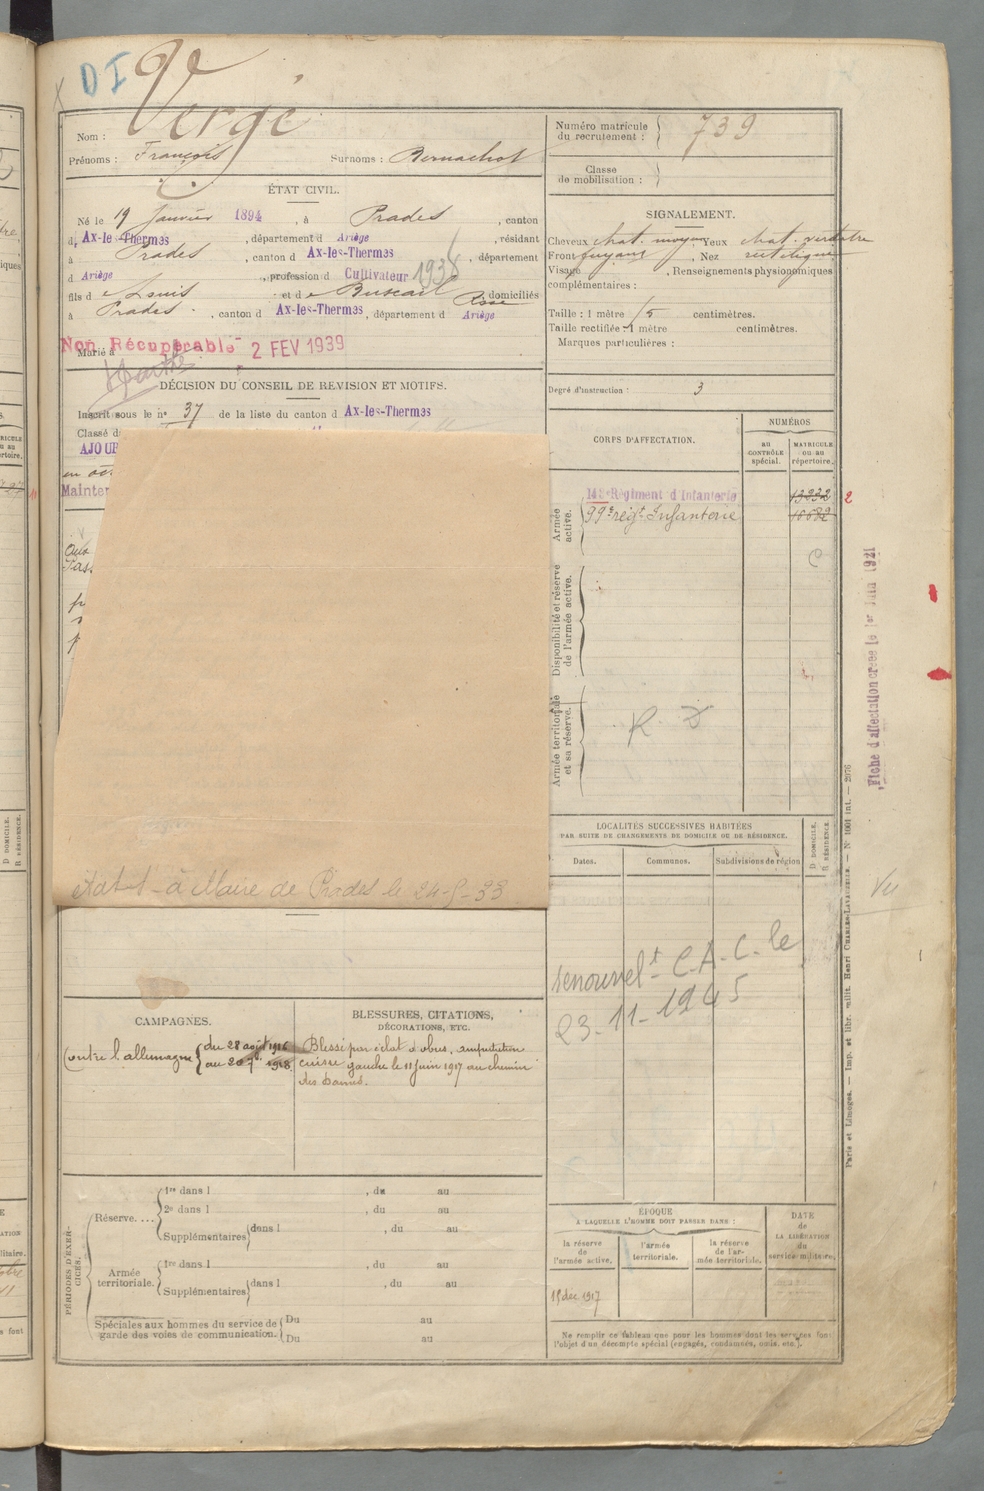 D I
Vergé
Nom :
Prénoms : François Surnoms : Bernachot
ÉTAT CIVIL.
Né le 19 Janvier 1894, à Prades, canton
d, Ax-les-Thermes, département d Ariège, résidant
à Prades, canton d Ax-les-Thermes, département
d Ariège, profession d Cultivateur
fils d e Louis et d e domiciliés
à Prades, canton d Ax-les-Thermes, département d Ariège
Non Récupérable 2 FEV 1939
Marié à
DÉCISION DU CONSEIL DE REVISION ET MOTIFS.
Inscrit sous le nº 37 de la liste du canton d Ax-les-Thermes
Classé d
AJOUR
Mainter
à Maire de Prades le
CAMPAGNES.
Contre l'allemagne du 28 août 1916
au 1918
BLESSURES, CITATIONS,
DÉCORATIONS, ETC.
Blessé par éclat d'obus, amputation
cuisse gauche le 11 juin 1917 au chemin
des Dames.
PÉRIODES D'EXERCICES.
Réserve.... 1re dans l , du au
2e dans l , du au
Supplémentaires dans l , du au
Armée territoriale. 1re dans l , du au
Supplémentaires dans l , du au
Spéciales aux hommes du service de garde des voies de communication. Du au
Du au
Numéro matricule
du recrutement : 739
Classe
de mobilisation :
SIGNALEMENT.
Cheveux chat. moyen Yeux chat. verdâtre
Front fuyant, Nez rectiligne
Visage , Renseignements physionomiques
complémentaires :
Taille : 1 mètre 5 centimètres.
Taille rectifiée 1 mètre centimètres.
Marques particulières :
Degré d'instruction : 3
CORPS D'AFFECTATION.
NUMÉROS
au
CONTRÔLE
spécial.
MATRICULE
ou au
répertoire.
Armée
active.
Régiment d'Infanterie 2
99e régt Infanterie
Disponibilité et réserve
de l'armée active.
Armée territoriale
et sa réserve.
R. D
Fiche d'affectation créée le 1er Juin 1921
LOCALITÉS SUCCESSIVES HABITÉES
PAR SUITE DE CHANGEMENTS DE DOMICILE OU DE RÉSIDENCE.
Dates. Communes. Subdivisions de région
D DOMICILE.
R RÉSIDENCE.
Vu
renouvelt C.A.C. le
23-11-1945
ÉPOQUE
À LAQUELLE L'HOMME DOIT PASSER DANS :
la réserve
de
l'armée active,
l'armée
territoriale.
la réserve
de l'ar-
mée territoriale.
DATE
de
LA LIBÉRATION
du
service militaire.
15 dec 1917
Ne remplir ce tableau que pour les hommes dont les services font
l'objet d'un décompte spécial (engagés, condamnés, omis, etc.).
Paris et Limoges. — Imp. et libr. milit. Henri CHARLES-LAVAUZELLE. — Nº 1001 int. — 2076